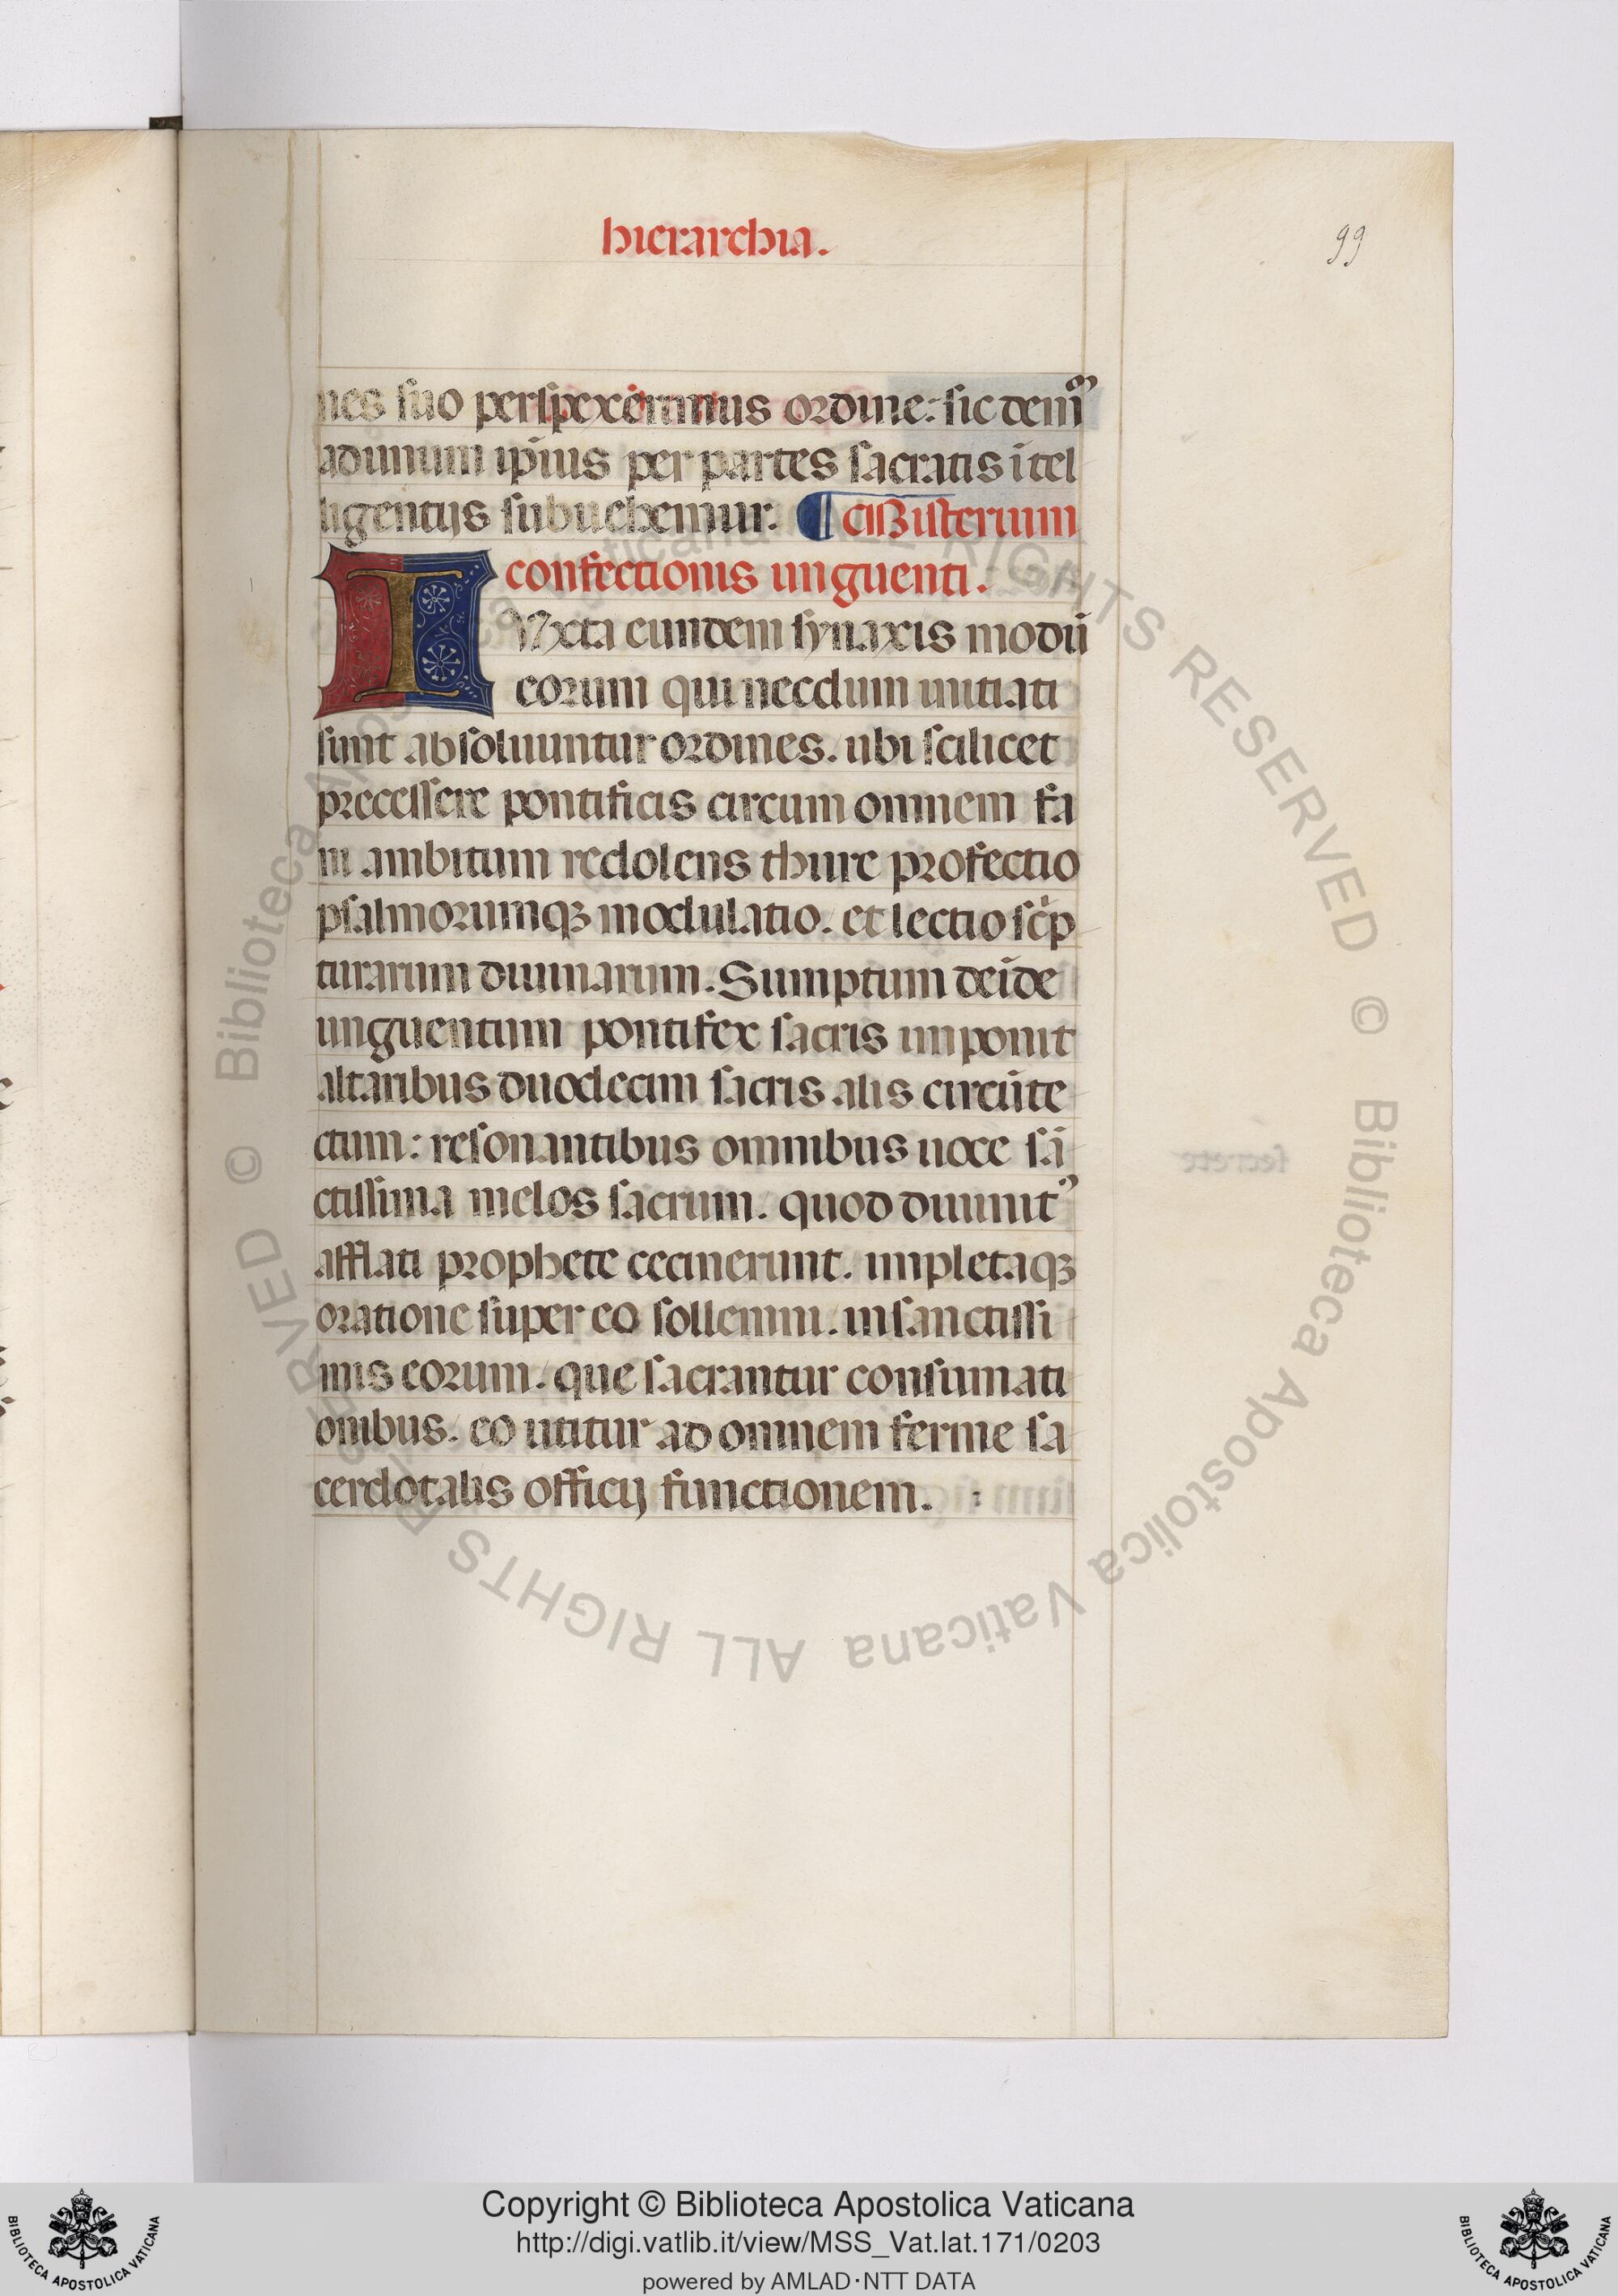 hierarchia.
99
nes suo perspexerimus ordine: sic demū
ad unum ip̄ius per partes sacratis ītel
ligentijs subuehemur. ¶ Misterium
confectionis unguenti.
IVxta eundem synaxis modū
eorum qui necdum initiati
sunt absoluuntur ordines. ubi scilicet
precessere pontificis circum omnem fa
ni ambitum redolens thure profectio
psalmorumqꝫ modulatio. et lectio sc̄p
turarum diuinarum. Sumptum deīde
unguentum pontifex sacris imponit
altaribus duodecim sacris alis circūte
ctum: resonantibus omnibus uoce sā
ctissima melos sacrum. quod diuinitꝰ
afflati prophete cecinerunt. impletaqꝫ
oratione super eo sollemni. in sanctissi
mis eorum. que sacrantur consumati
onibus. eo utitur ad omnem ferme sa
cerdotalis officij functionem.
© Biblioteca Apostolica Vaticana ALL RIGHTS RESERVED © Biblioteca Apostolica Vaticana ALL RIGHTS RESERVED
Copyright © Biblioteca Apostolica Vaticana
http://digi.vatlib.it/view/MSS_Vat.lat.171/0203
powered by AMLAD·NTT DATA
BIBLIOTECA APOSTOLICA VATICANA
BIBLIOTECA APOSTOLICA VATICANA